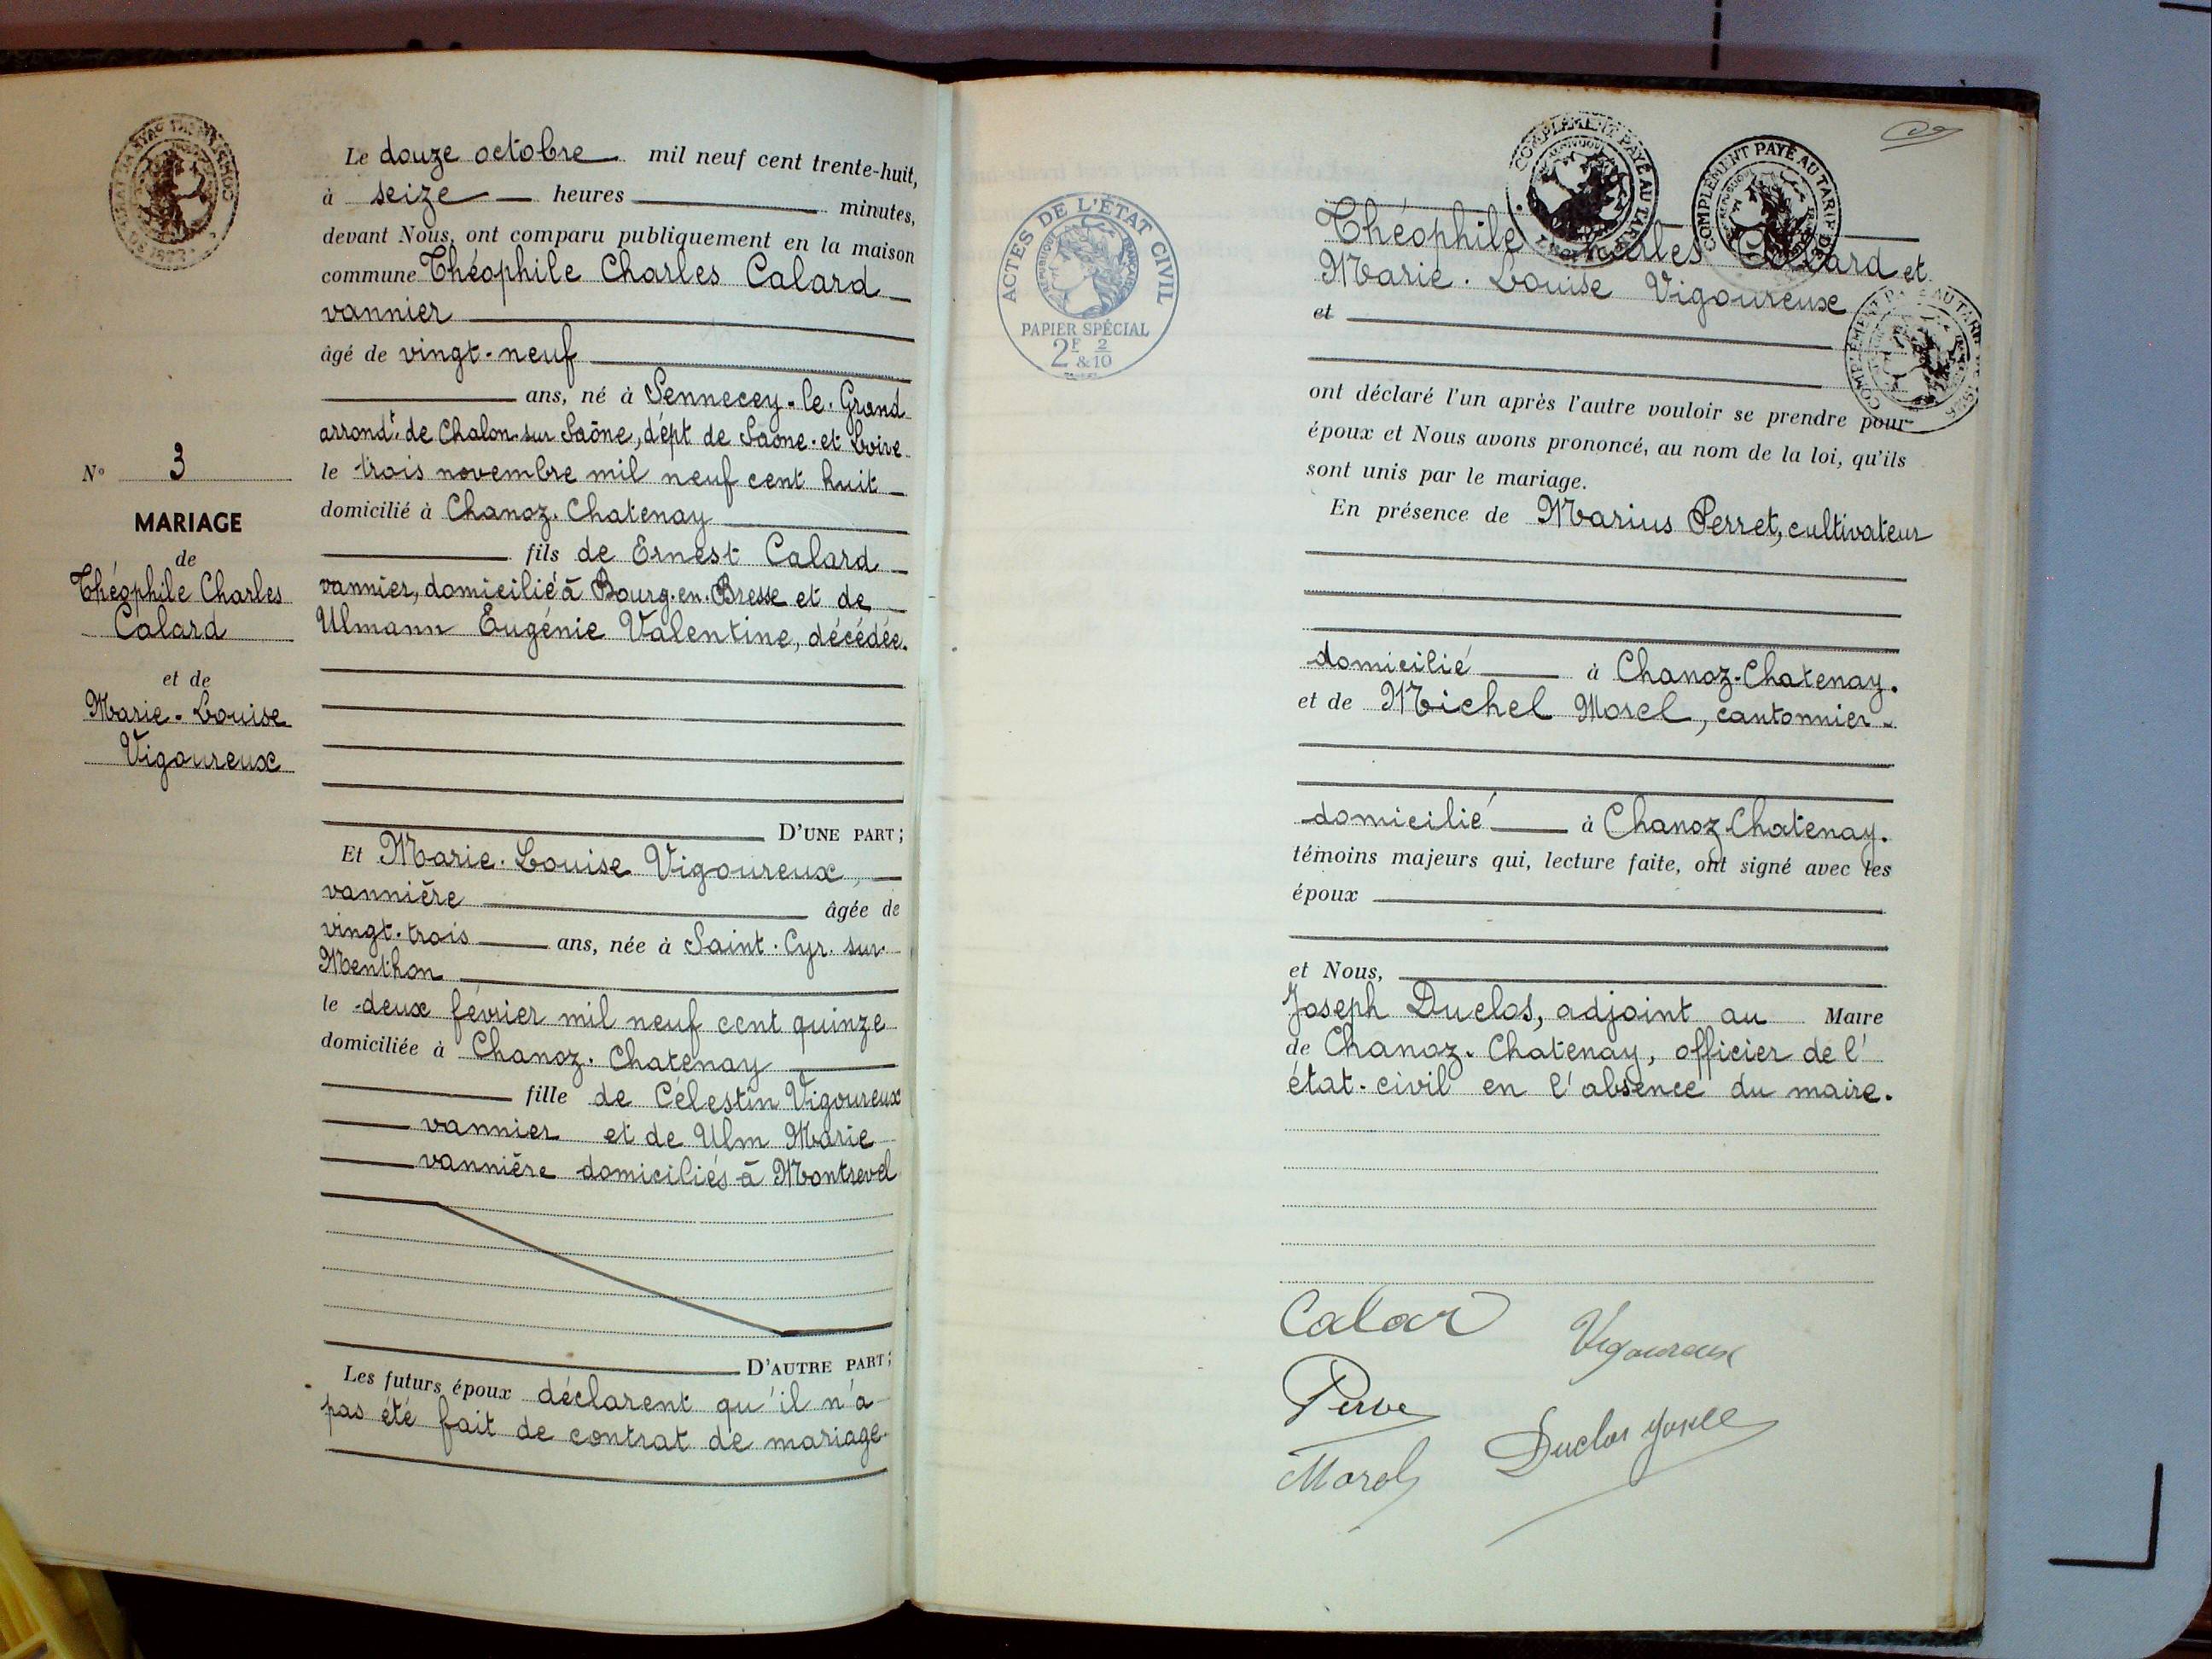 Le douze octobre mil neuf cent trente-huit,
à seize heures minutes,
devant Nous, ont comparu publiquement en la maison
commune Théophile Charles Calard
vannier
âgé de vingt-neuf
ans, né à Sennecey-le-Grand
arrondt. de Chalon-sur Saône, dépt de Saone-et Loire
le trois novembre mil neuf cent huit
domicilié à Chanoz-Chatenay
fils de Ernest Calard
vannier, domicilié à Bourg-en-Bresse et de
Ulmann Eugénie Valentine, décédée.
D'UNE PART;
Et Marie-Louise Vigoureux,
vannière âgée de
vingt-trois ans, née à Saint-Cyr-sur
Menthon
le deux février mil neuf cent quinze
domiciliée à Chanoz-Chatenay
fille de Célestin Vigoureux
vannier et de Ulm Marie
vannière domiciliés à Montrevel
D'AUTRE PART;
Les futurs époux déclarent qu'il n'a
pas été fait de contrat de mariage.
N° 3
MARIAGE
de
Théophile Charles
Calard
et de
Marie-Louise
Vigoureux
ACTES DE L'ÉTAT CIVIL
PAPIER SPÉCIAL
2F & 2/10
COMPLÉMENT PAYÉ AU TARIF
COMPLÉMENT PAYÉ AU TARIF DE
Théophile Charles Calard et
Marie-Louise Vigoureux
et
ont déclaré l'un après l'autre vouloir se prendre pour
époux et Nous avons prononcé, au nom de la loi, qu'ils
sont unis par le mariage.
En présence de Marius Perret, cultivateur
domicilié à Chanoz-Chatenay.
et de Michel Morel, cantonnier
domicilié à Chanoz-Chatenay.
témoins majeurs qui, lecture faite, ont signé avec les
époux
et Nous,
Joseph Duclos, adjoint au Maire
de Chanoz-Chatenay, officier de l'
état-civil en l'absence du maire.
Calar
Vigoureux
Morel
Duclos